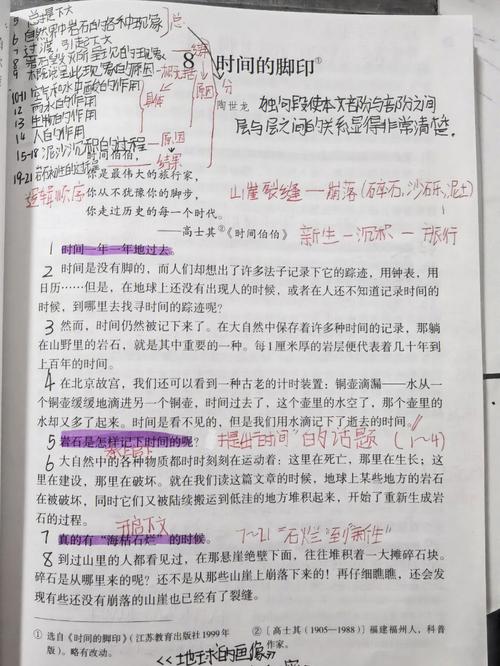 5 总是不大
6 自然界中岩石的各种现象
总
7 过渡,引起下文
8
9
因
10-11 空气和水中酸的作用
12 雨水的作用
13 水的作用
14 人的作用
15-18 泥沙沉积的过程
原因
结果
19-21
逻辑顺序
具体
原因
分
8 时间的脚印①
陶世龙
独句段使本文部分与部分之间
层与层之间的关系显得非常清楚。
时间伯伯,
你是最伟大的旅行家,
你从不犹豫你的脚步,
你走过历史的每一个时代。
——高士其②《时间伯伯》
山崖裂缝—崩落(碎石,沙砾,泥土)
新生—沉积—旅行
1 时间一年一年地过去。
2 时间是没有脚的,而人们却想出了许多法子记录下它的踪迹,用钟表,用
日历……但是,在地球上还没有出现人的时候,或者在人还不知道记录时间的
时候,到哪里去找寻时间的踪迹呢?
3 然而,时间仍然被记下来了。在大自然中保存着许多种时间的记录,那躺
在山野里的岩石,就是其中重要的一种。每1厘米厚的岩层便代表着几十年到
上百年的时间。
4 在北京故宫,我们还可以看到一种古老的计时装置:铜壶滴漏——水从一
个铜壶缓缓地滴进另一个铜壶,时间过去了,这个壶里的水空了,那个壶里的
水却又多了起来。时间是看不见的,但是我们用水滴记下了逝去的时间。
5 岩石是怎样记下时间的呢?
提出“时间”的话题(1~4)
6 大自然中的各种物质都时时刻刻在运动着:这里在死亡,那里在生长;这
里在建设,那里在破坏。就在我们读这篇文章的时候,地球上某些地方的岩石
在被破坏,同时它们又被陆续搬运到低洼的地方堆积起来,开始了重新生成岩
石的过程。
开启下文
7 真的有“海枯石烂”的时候。
7~21“石烂”到“新生”
8 到过山里的人都看见过,在那悬崖绝壁下面,往往堆积着一大摊碎石块。
碎石是从哪里来的呢?还不是从那些山崖上崩落下来的!再仔细瞧瞧,还会发
现有些还没有崩落的山崖也已经有了裂缝。
① 选自《时间的脚印》(江苏教育出版社1999年
版)。略有改动。
② [高士其(1905—1988)]福建福州人,科普
作家。
《地球的画像》